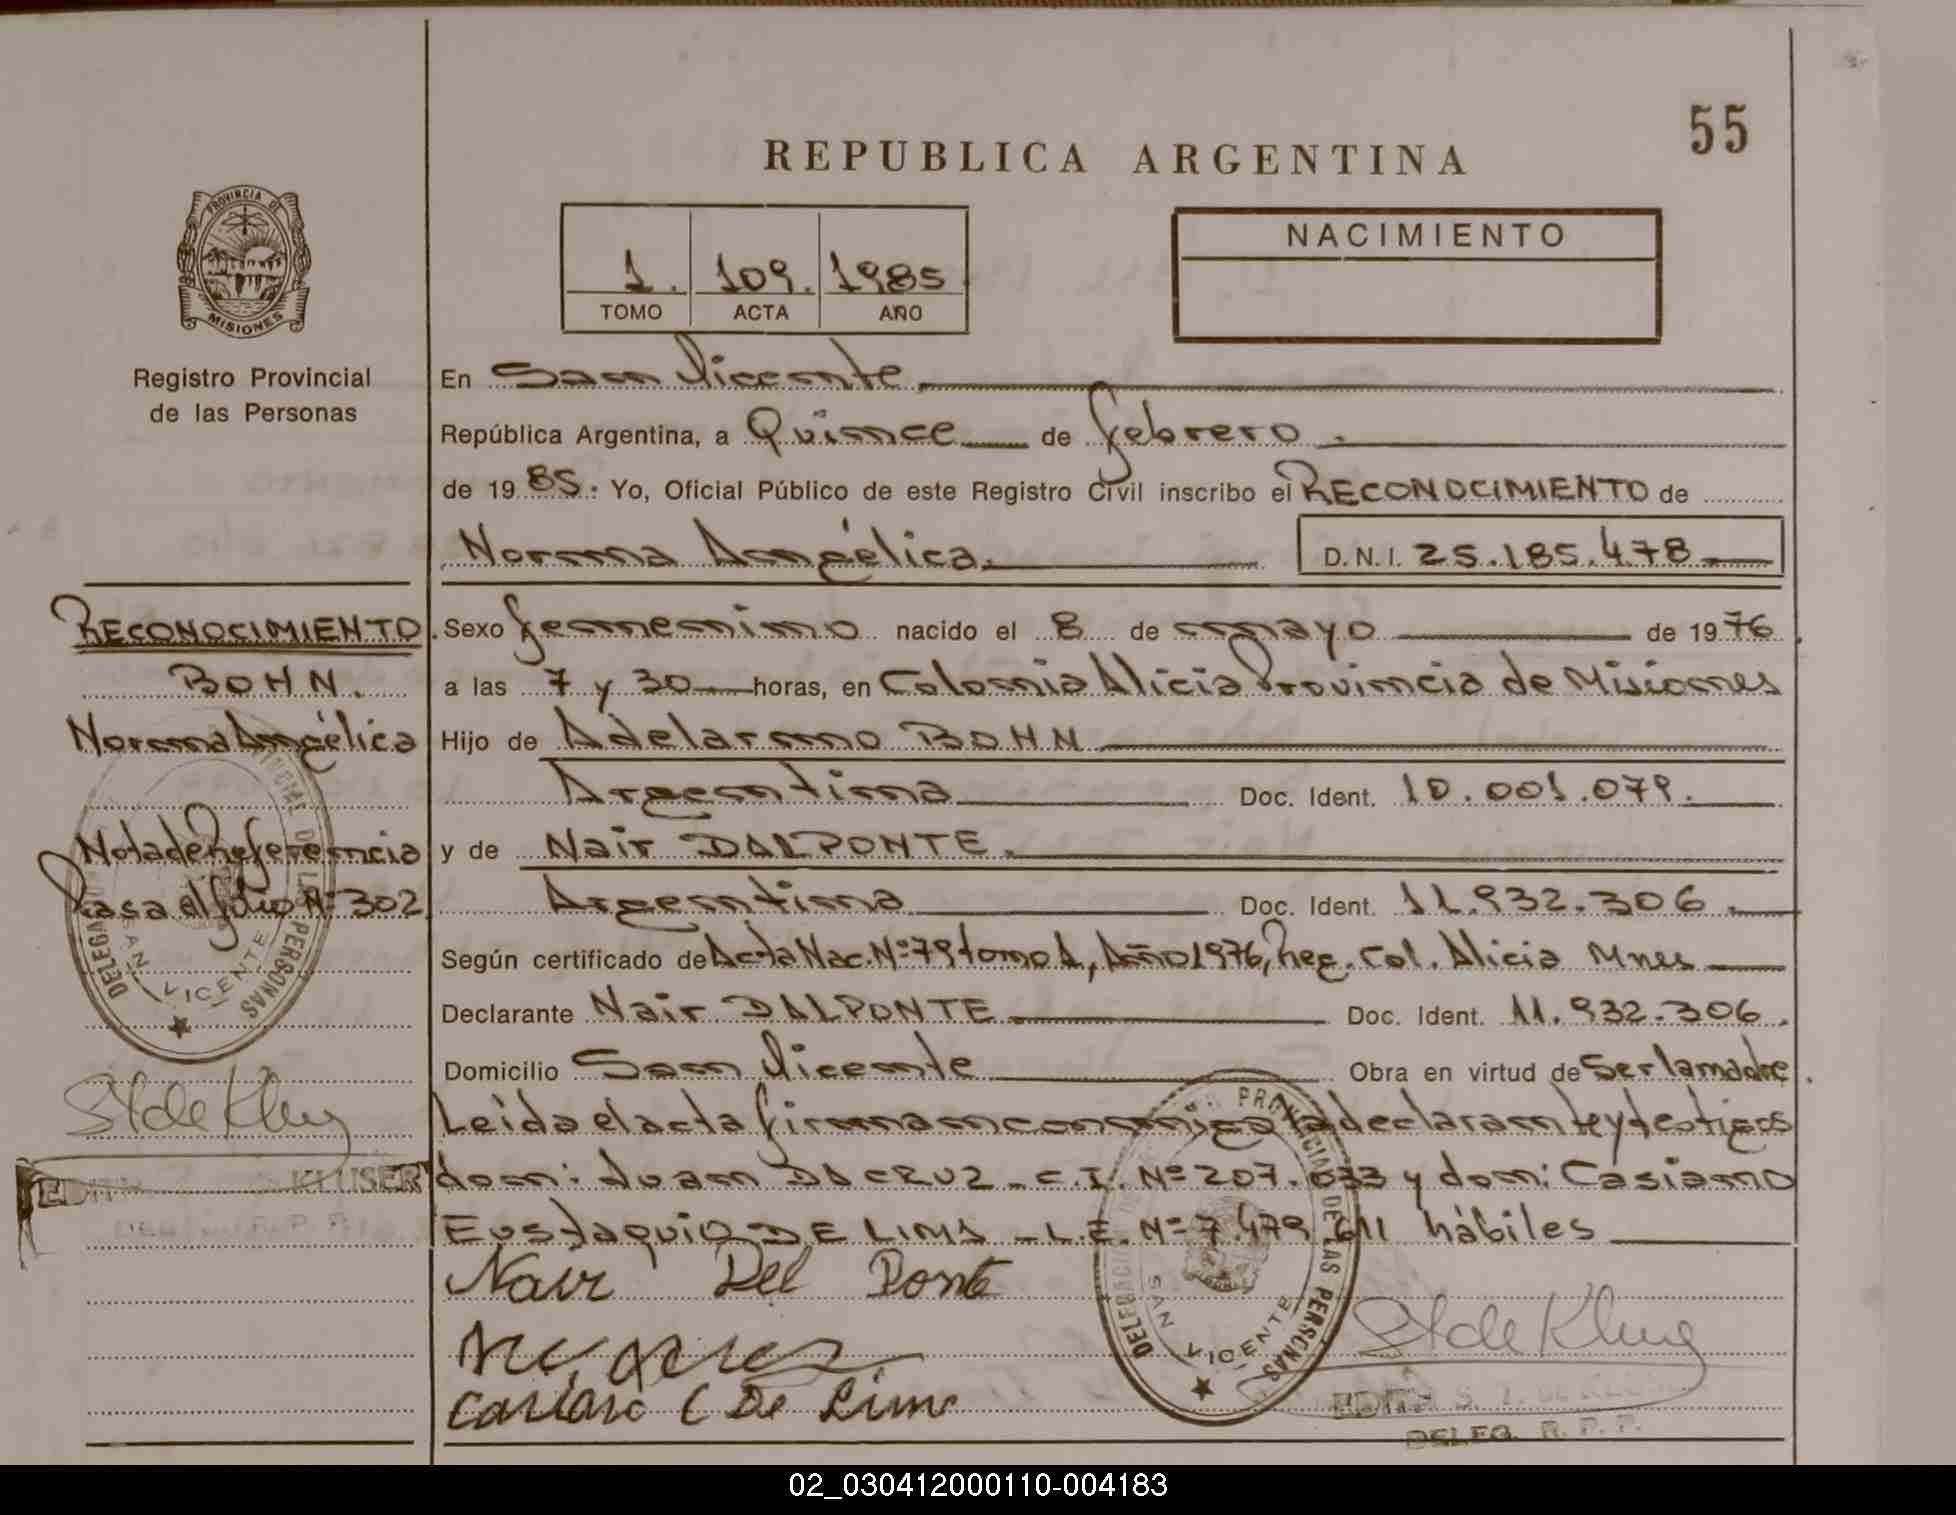 55
REPUBLICA ARGENTINA
PROVINCIA DE
MISIONES
Registro Provincial
de las Personas
1. 109. 1985
TOMO ACTA AÑO
NACIMIENTO
En San Vicente
República Argentina, a Quince de febrero.
de 1985. Yo, Oficial Público de este Registro Civil inscribo el RECONOCIMIENTO de
Norma Angélica. D.N.I. 25.185.478
RECONOCIMIENTO
BOHN.
Norma Angélica
Nota de Referencia
Pasa al folio Nº 302
DELEGA PROVINCIAL DE LAS PERSONAS
SAN VICENTE
EDITH KLUSER
Sexo femenino nacido el 8 de mayo de 1976
a las 7 y 30 horas, en Colonia Alicia Provincia de Misiones
Hijo de Adelarmo BOHN
Argentina Doc. Ident. 10.001.079.
y de Nair DALPONTE.
Argentina Doc. Ident. 11.932.306.
Según certificado de Acta Nac. Nº 79 tomo 1, Año 1976, Reg. Col. Alicia Mnes
Declarante Nair DALPONTE Doc. Ident. 11.932.306.
Domicilio San Vicente Obra en virtud de Ser la madre.
Leída el acta firman conmigo la declarante y testigos
don: Juan DA CRUZ - C.I. Nº 207.033 y don: Casiano
Eustaquio DE LIMA - L.E. Nº 7.479.611 hábiles
Nair Del Ponte
De Lima
DELEGACION PROVINCIAL DE LAS PERSONAS
SAN VICENTE
EDITH S. T. DE
DELEG. R. P. P.
02_030412000110-004183